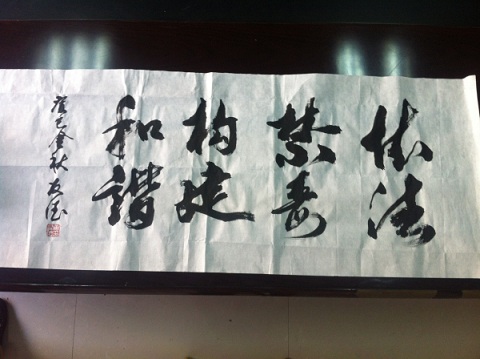 依法
禁毒
构建
和谐
癸巳金秋友德